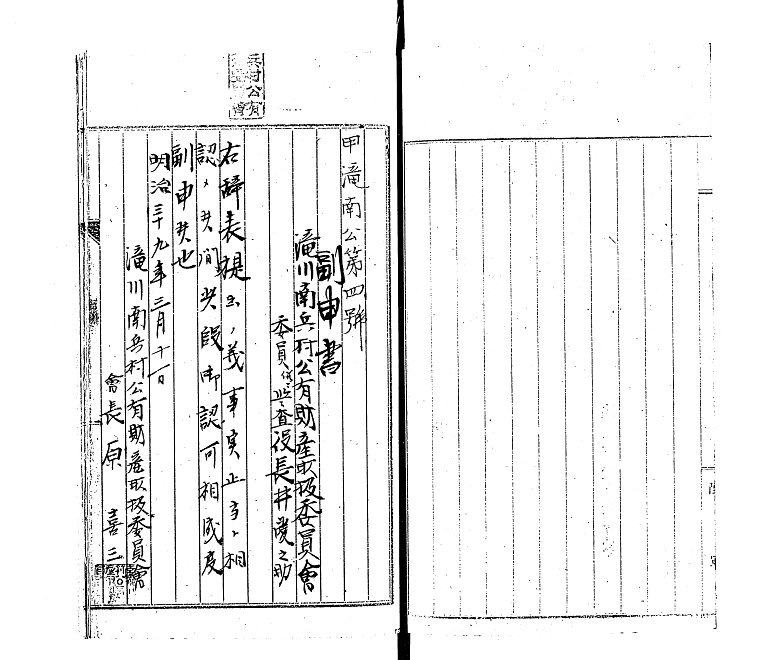 甲滝南公第四號
副申書
滝川南兵村公有財産取扱委員會
委員 監査役長井愛之助
右辞表提出ノ義事実正当ト相
認メ候間此段御認可相成度
副申候也
明治三十九年三月十一日
滝川南兵村公有財産取扱委員會
會長 原 喜三
兵村公有